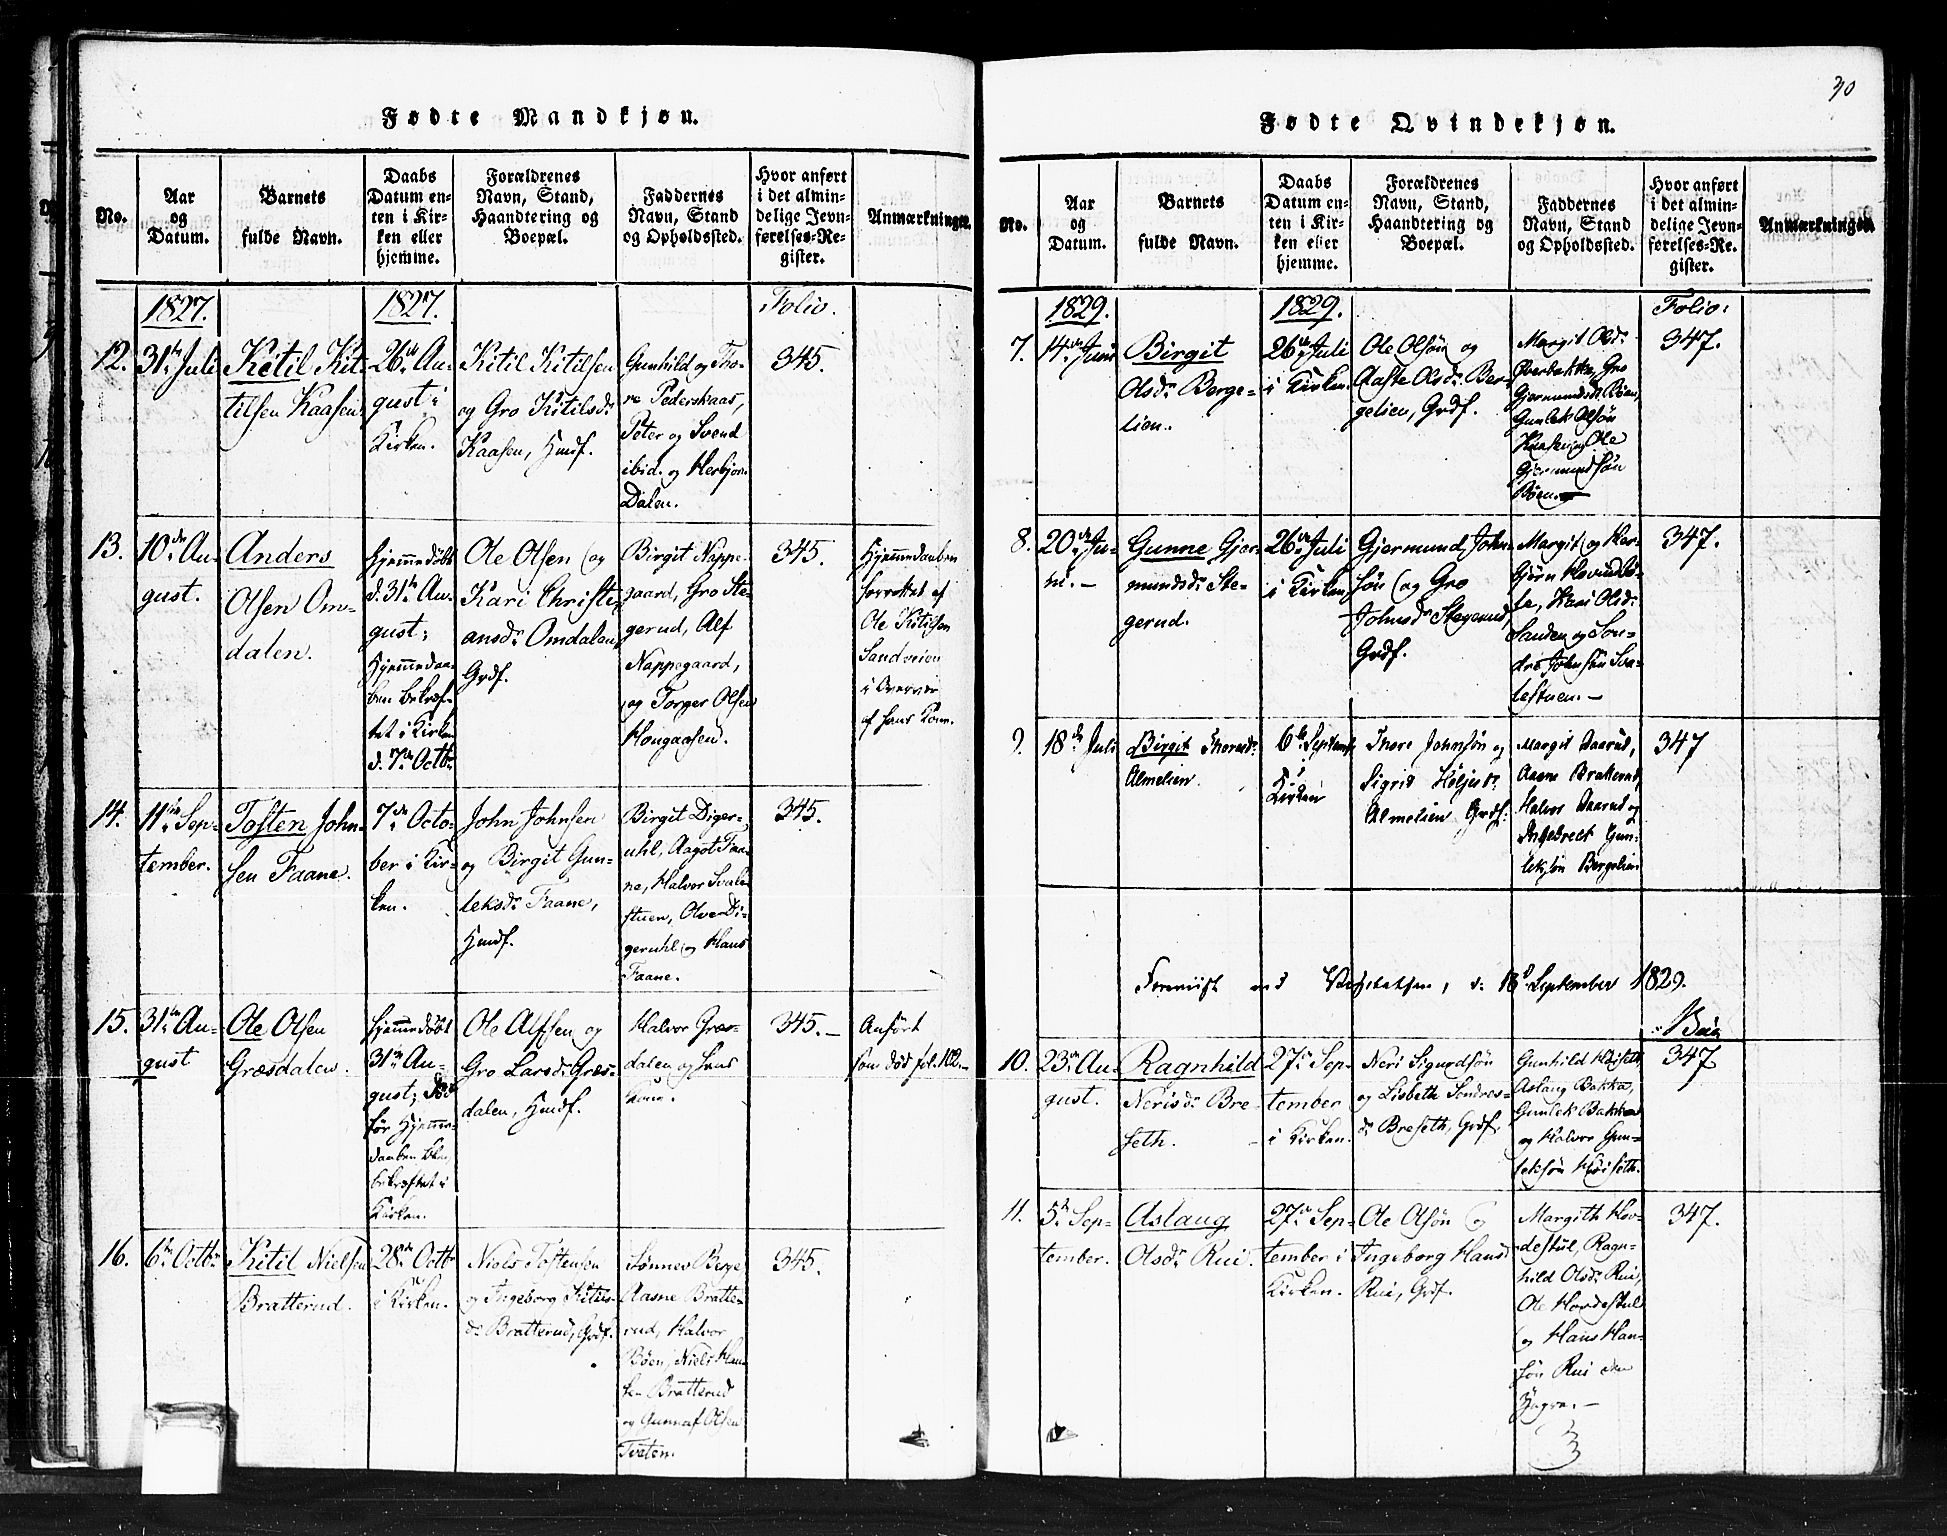 Fødte Mandkjøn.
No.
Aar
og
Datum.
Barnets
fulde Navn.
Daabs
Datum en-
ten i Kir-
ken eller
hjemme.
Forældrenes
Navn, Stand,
Haandtering og
Boepæl.
Faddernes
Navn, Stand
og Opholdssted.
Hvor anført
i det almin-
delige Jevn-
førelses-Re-
gister.
Anmærkninger.
1827.
1827.
Folio.
12.
31te Juli
Kitil Kit-
tilsen Kaasen
26de Au-
gust i
Kirken.
Kitil Kitilsen
og Gro Kitilsdr
Kaasen, Hmdf.
Gunhild og Tho-
re Pederskaas,
Peter og Svend
ibid. og Herbjør
Dalen.
345.
13.
10de Au-
gust.
Anders
Olsen Om-
dalen.
Hjemmedøbt
d. 31te Au-
gust;
Hjemmedaa-
ben bekræf-
tet i Kirken
d. 7de Octbr
Ole Olsen og
Kari Christi-
ansdr Omdalen,
Grdf.
Birgit Nappe-
gaard, Gro Ste-
gerud, Alf
Nappegaard,
og Torger Olsen
Hougaasen.
345.
Hjemmedaaben
forrettet af
Ole Kitilsen
Sandveien
i Overvær
af hans Kone.
14.
11te Sep-
tember.
Tosten John-
sen Faane.
7de Octo-
ber i Kir-
ken.
John Johnsen
og Birgit Gun-
leksdr Faane,
Hmdf.
Birgit Diger-
uhl, Aagot Faa-
ne, Halvor Svale-
stuen, Olver Di-
geruhl og Hans
Faane.
345.
15.
31te Au-
gust
Ole Olsen
Græsdalen.
Hjemmedøbt
31te Au-
gust; Død
før Hjemme-
daaben blev
bekræftet i
Kirken.
Ole Alfsen og
Gro Larsdr Græs-
dalen, Hmdf.
Halvor Græs-
dalen og hans
Kone.
345.-
Anført
som død fol. 102.-
16.
6te Octbr
Kitil Nielsen
Bratterud.
28de Octbr
i Kirken.
Niels Tostensen
og Ingeborg Kitils-
dr Bratterud, Grdf.
Sønnev Berge
Aasne Bratte-
rud, Halvor
Bøen, Niels Han-
sen Bratterud
og Gunnuf Olsen
Tveten.
345.
30
Fødte Qvindekjøn.
No.
Aar
og
Datum.
Barnets
fulde Navn.
Daabs
Datum en-
ten i Kir-
ken eller
hjemme.
Forældrenes
Navn, Stand,
Haandtering og
Boepæl.
Faddernes
Navn, Stand
og Opholdssted.
Hvor anført
i det almin-
delige Jevn-
førelses-Re-
gister.
Anmærkninger.
1829.
1829.
Folio:
7.
14de Juni
Birgit
Olsdr Berge-
lien.
26de Juli
i Kirken
Ole Olsøn og
Aaste Olsdr Ber-
gelien, Grdf.
Margit Olsdr
Øverbakka, Gro
Gjermundsdr Bøen,
Gunlek Olsøn
Kaasen og Ole
Gjermundsøn
Bøen.-
347.
8.
20de Ju-
ni.-
Gunne Gjer-
mundsdr Ste-
gerud.
26de Juli
i Kirken
Gjermund John-
søn og Gro
Johnsdr Stegerud,
Grdf.
Margit og Her-
bjørn
Kari Olsdr
Sanden og Son-
dre Johnsøn Sva-
lestuen.-
347.
9.
18de Juli
Birgit Thoresdr
Almelien.
6te Septemb
i
Kirken
Thore Johnsøn og
Sigrid Høljesdr
Almelien Grdf.
Margit Aaerud,
Aasne Bratterud,
Halvor Aaerud og
Ingebrekt Gun-
leksøn Bergelien
347
ved Visitatsen, d: 18d September 1829.
10.
23de Au-
gust.
Ragnhild
Nerisdr Bre-
seth.
27de Sep-
tember
i Kirken.
Neri Sigurdsøn
og Lisbeth Sondres-
dr Breseth, Grdf.
Gunhild Høiseth,
Aslaug Bakka,
Gunlek Bakka
og Halvor Gun-
leksøn Høiseth.
347
11.
5te Sep-
tember.
Aslaug
Olsdr Rui.
27de Sep-
tember i
Kirken.
Ole Olsøn og
Ingeborg Hansdr
Rui, Grdf.
Margith Hov-
destul, Ragn-
hild Olsdr Rui,
Ole Hovdestul
og Hans Han-
søn Rui den
Yngre.-
347.